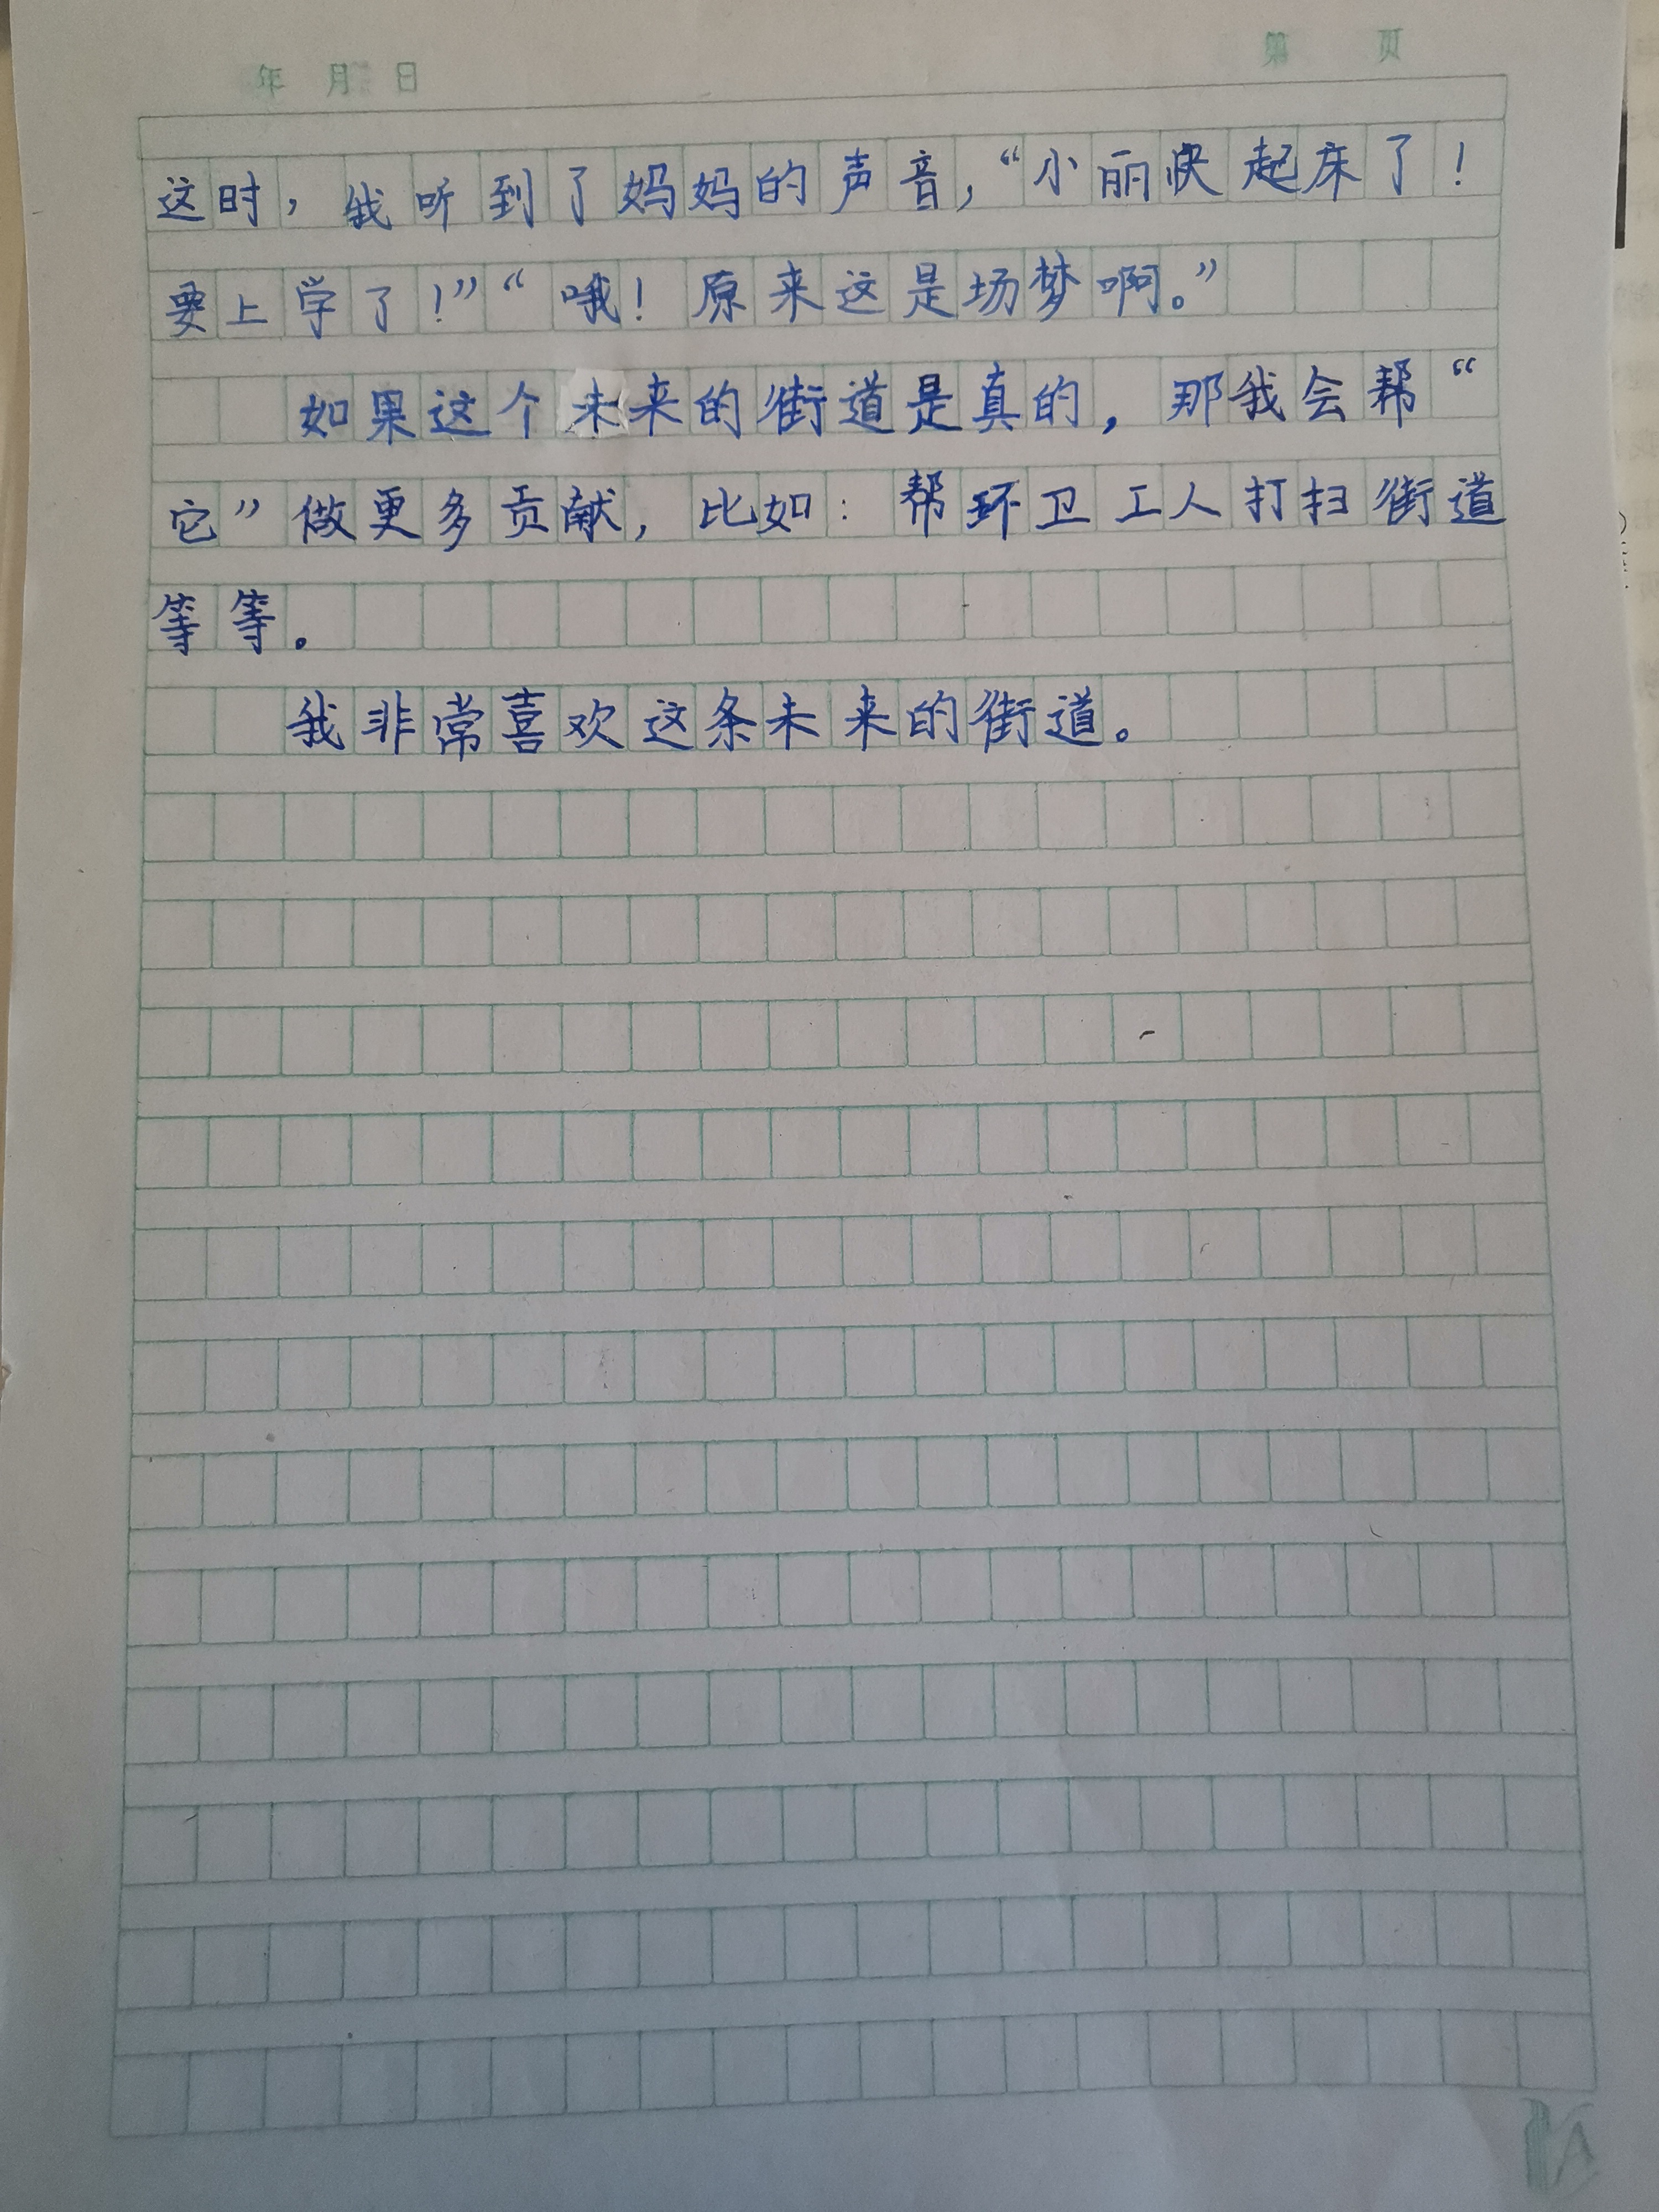 年 月 日
第 页
这时，我听到了妈妈的声音，“小丽快起床了！
要上学了！”“哦！原来这是场梦啊。”
如果这个未来的街道是真的，那我会帮“
它”做更多贡献，比如：帮环卫工人打扫街道
等等。
我非常喜欢这条未来的街道。